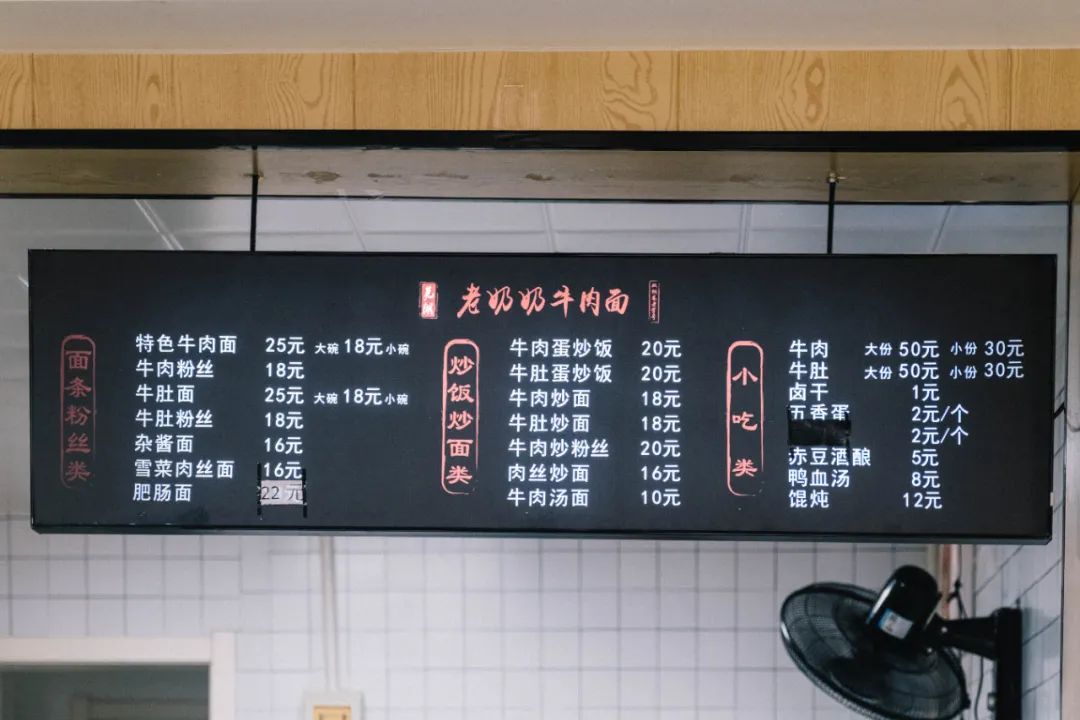 老奶奶牛肉面
面条粉丝类
特色牛肉面 25元 大碗 18元 小碗
牛肉粉丝 18元
牛肚面 25元 大碗 18元 小碗
牛肚粉丝 18元
杂酱面 16元
雪菜肉丝面 16元
肥肠面 22 元
炒饭炒面类
牛肉蛋炒饭 20元
牛肚蛋炒饭 20元
牛肉炒面 18元
牛肚炒面 18元
牛肉炒粉丝 20元
肉丝炒面 16元
牛肉汤面 10元
小吃类
牛肉 大份 50元 小份 30元
牛肚 大份 50元 小份 30元
卤干 1元
五香蛋 2元/个
2元/个
赤豆酒酿 5元
鸭血汤 8元
馄炖 12元